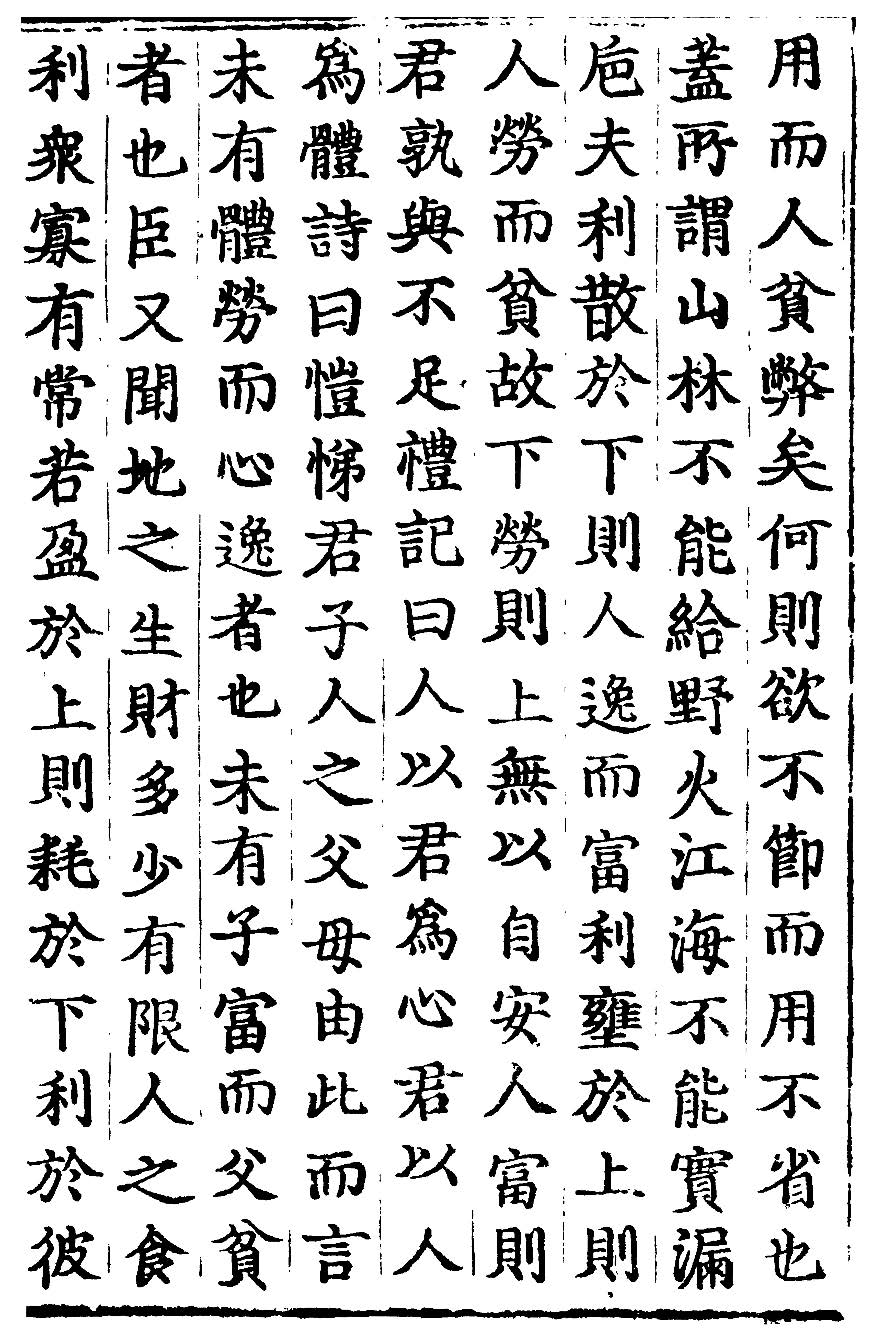 用而人貧弊矣何則欲不節而用不省也
蓋所謂山林不能給野火江海不能實漏
巵夫利散於下則人逸而富利壅於上則
人勞而貧故下勞則上無以自安人富則
君孰與不足禮記曰人以君為心君以人
為體詩曰愷悌君子人之父母由此而言
未有體勞而心逸者也未有子富而父貧
者也臣又聞地之生財多少有限人之食
利衆寡有常若盈於上則耗於下利於彼